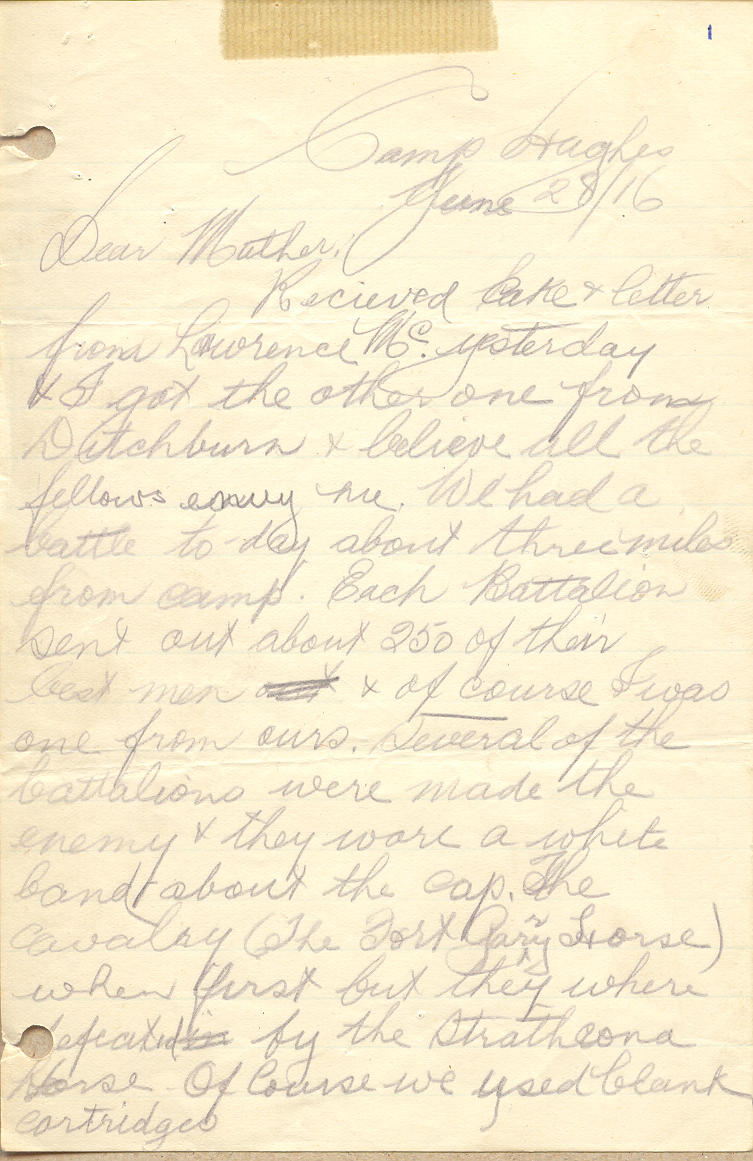 1
Camp Hughes
June 28/16
Dear Mother,
Recieved Cake & letter
from Lawrence Mc. yesterday
& I got the other one from
Dutchburn & believe all the
fellows envy me. We had a
battle to-day about three miles
from camp. Each Battalion
sent out about 250 of their
best men & of course I was
one from ours. Several of the
battalions were made the
enemy & they wore a white
band about the cap. The
cavalry (The Fort Gary Horse)
when first but they where
defeated by the Strathcona
Horse. Of Course we used blank
cartridges